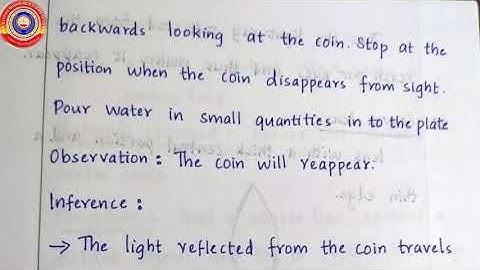 backwards looking at the coin. Stop at the
position when the coin disappears from sight.
Pour water in small quantities in to the plate
Observation : The coin will reappear.
Inference :
→ The light reflected from the coin travels